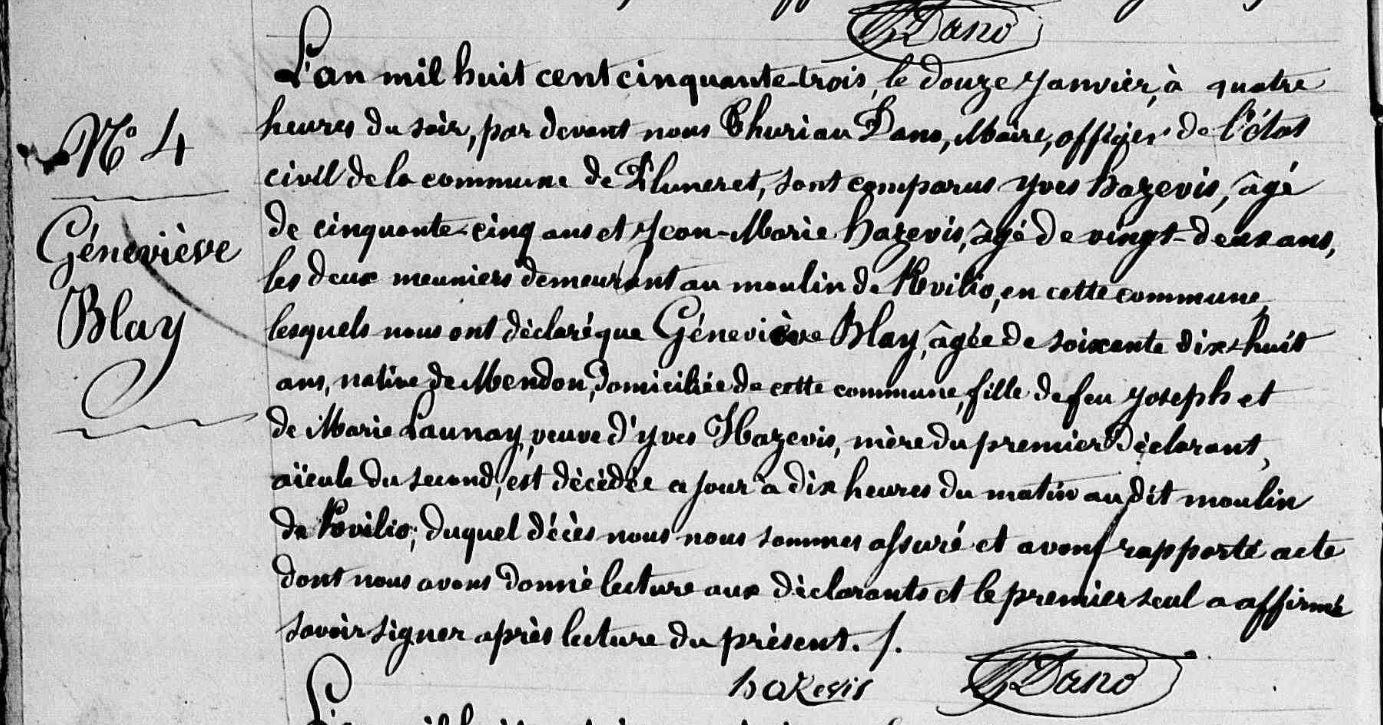 Dano
L'an mil huit cent cinquante-trois, le douze Janvier, à quatre
heures du soir, par devant nous Thuriau Dano, Maire, officier de l'état
N° 4
civil de la commune de Pluneret, sont comparus Yves hazevis, âgé
de cinquante-cinq ans et Jean-Marie hazevis, âgé de vingt-deux ans,
Géneviève
les deux meuniers demeurant au moulin de Kvilio, en cette commune,
Blay
lesquels nous ont déclaré que Géneviève Blay, âgée de soixante dix-huit
ans, native de Mendon, domiciliée de cette commune, fille de feu Joseph et
de Marie Launay, veuve d'yves Hazevis, mère du premier déclarant,
aïeule du second, est décédée ce jour à dix heures du matin au dit moulin
de Kvilio; duquel décès nous nous sommes assuré et avons rapporté acte
dont nous avons donné lecture aux déclarants et le premier seul a affirmé
savoir signer après lecture du présent. /.
hazevis Dano
L'an mil huit cent